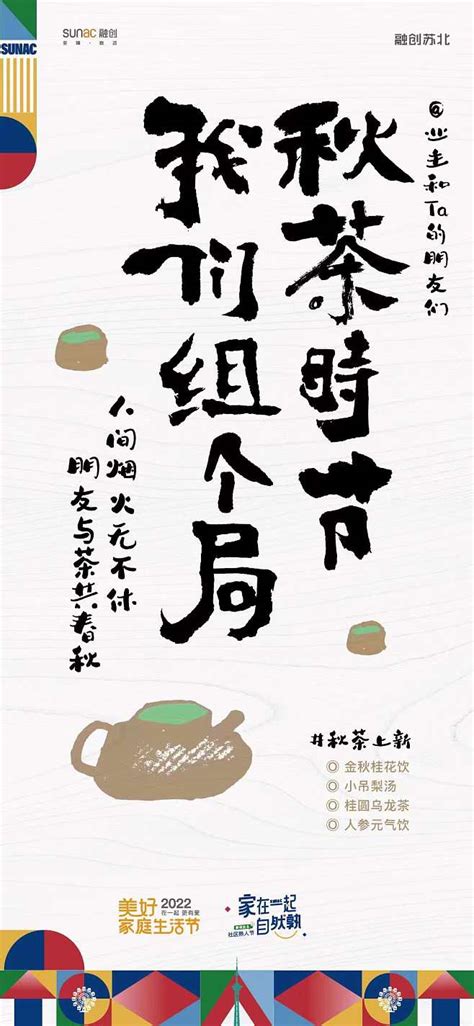 SUNAC
sunac 融创
融创苏北
@业主和Ta的朋友们
秋茶時节
我们组个局
人间烟火无不休
朋友与茶共春秋
#秋茶上新
◎ 金秋桂花饮
◎ 小吊梨汤
◎ 桂圆乌龙茶
◎ 人参元气饮
美好2022
在一起 更有爱
家庭生活节
家在一起
自然熟
社区熟人节